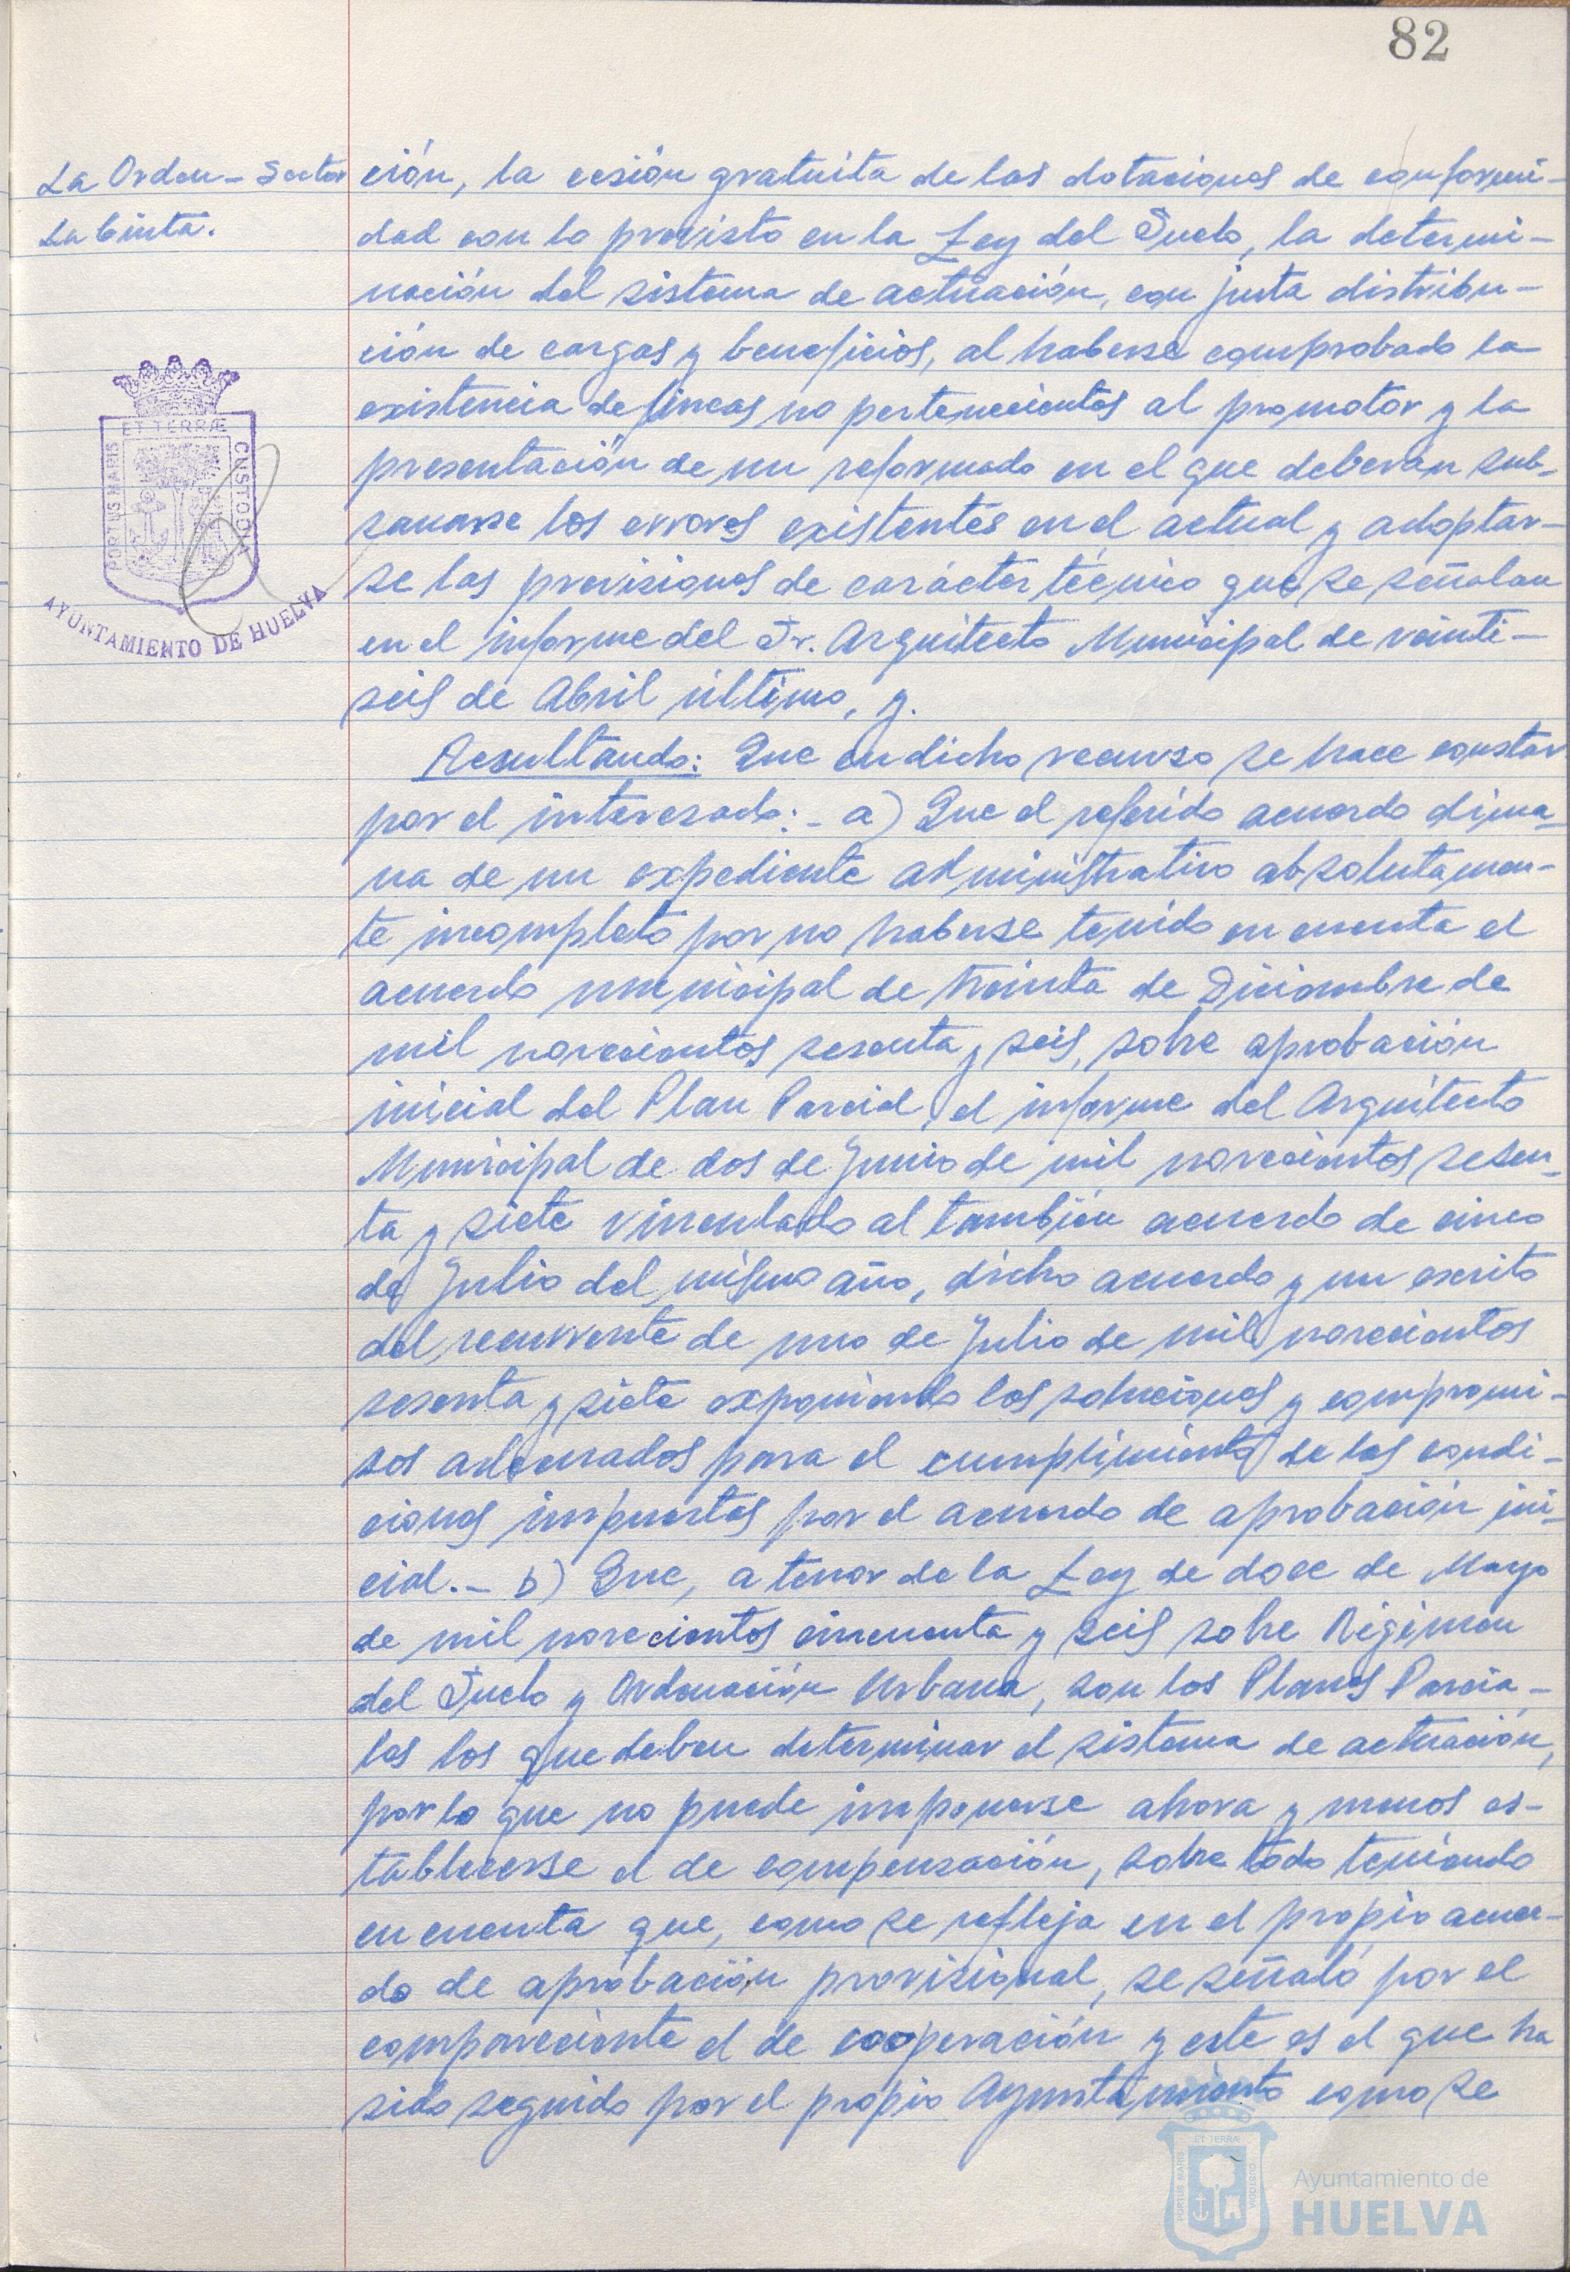 82
La Orden - Sector
La Cinta.
ción, la cesión gratuita de las dotaciones de conformi-
dad con lo previsto en la Ley del Suelo, la determi-
nación del sistema de actuación, con justa distribu-
ción de cargas y beneficios, al haberse comprobado la
existencia de fincas no pertenecientes al promotor y la
presentación de un reformado en el que deberán sub-
sanarse los errores existentes en el actual y adoptar-
se las previsiones de carácter técnico que se señalan
en el informe del Sr. Arquitecto Municipal de veinti-
seis de Abril último, y.
Resultando: Que en dicho recurso se hace constar
por el interesado: - a) Que el referido acuerdo dima-
na de un expediente administrativo absolutamen-
te incompleto por no haberse tenido en cuenta el
acuerdo municipal de treinta de Diciembre de
mil novecientos sesenta y seis, sobre aprobación
inicial del Plan Parcial, el informe del Arquitecto
Municipal de dos de Junio de mil novecientos sesen-
ta y siete vinculado al también acuerdo de cinco
de Julio del mismo año, dicho acuerdo y un escrito
del recurrente de uno de Julio de mil novecientos
sesenta y siete exponiendo las soluciones y compromi-
sos adecuados para el cumplimiento de las condi-
ciones impuestas por el acuerdo de aprobación ini-
cial. - b) Que, a tenor de la Ley de doce de Mayo
de mil novecientos cincuenta y seis sobre Régimen
del Suelo y Ordenación Urbana, son los Planes Parcia-
les los que deben determinar el sistema de actuación,
por lo que no puede imponerse ahora y menos es-
tablecerse el de compensación, sobre todo teniendo
en cuenta que, como se refleja en el propio acuer-
do de aprobación provisional, se señaló por el
compareciente el de cooperación y este es el que ha
sido seguido por el propio Ayuntamiento como se
PORTUS MARIS
ET TERRÆ
CUSTODIA
AYUNTAMIENTO DE HUELVA
PORTUS MARIS
ET TERRÆ
CUSTODIA
Ayuntamiento de
HUELVA